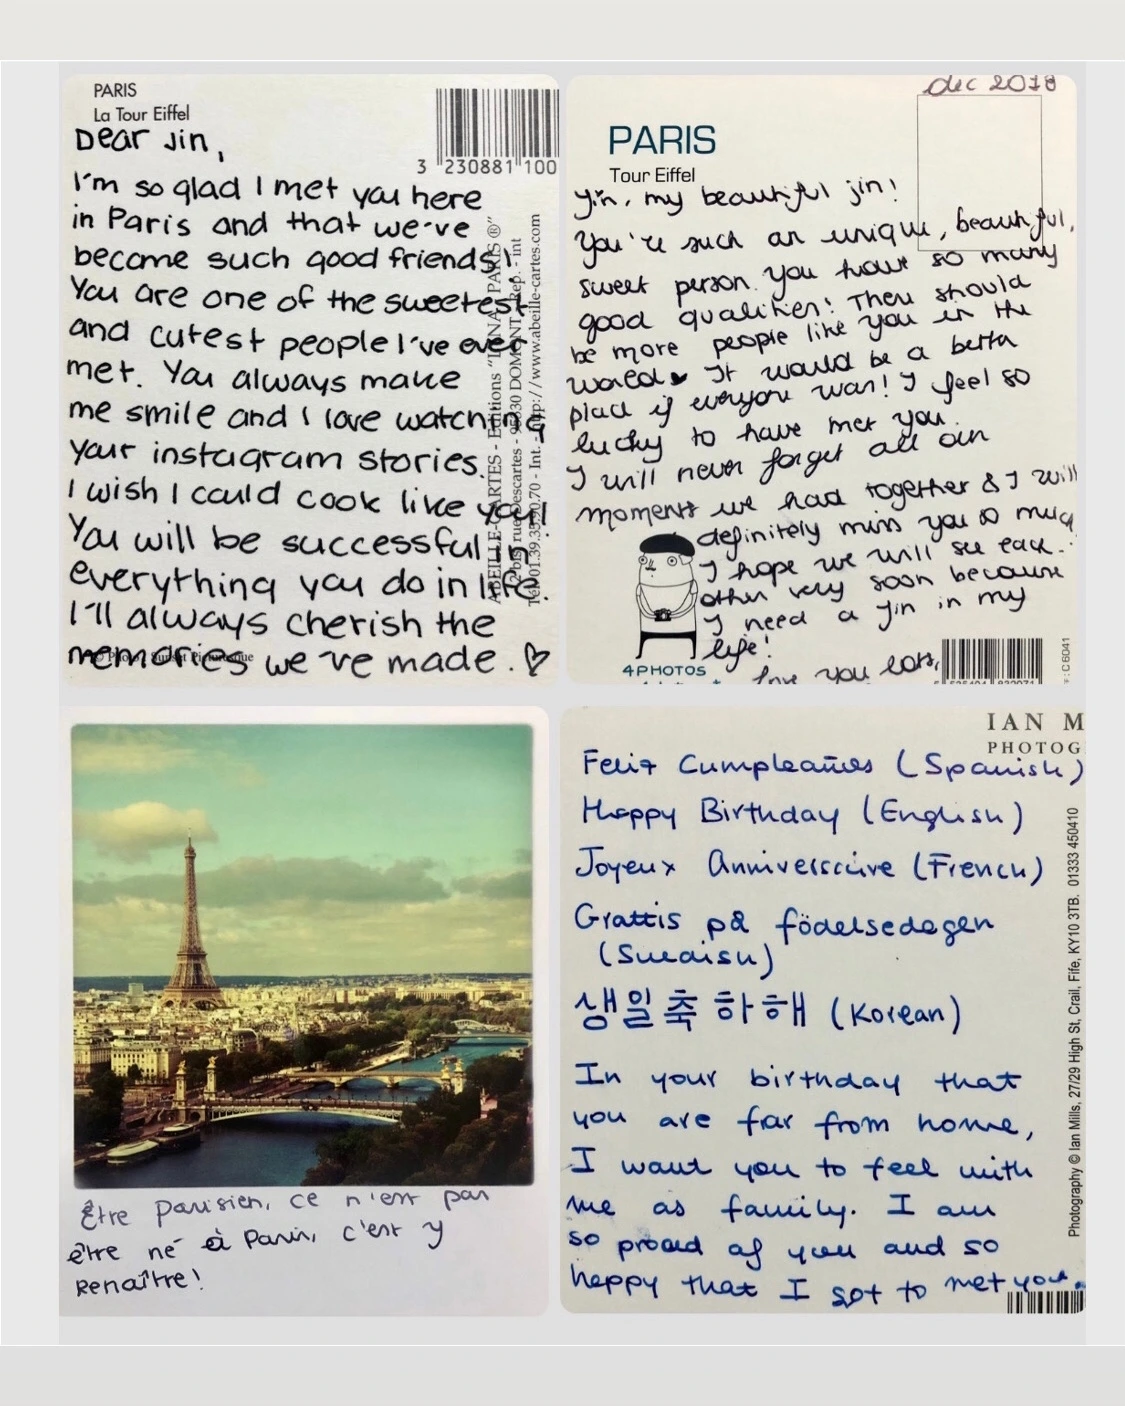 PARIS
La Tour Eiffel
Dear Jin,
I'm so glad I met you here
in Paris and that we've
become such good friends!
You are one of the sweetest
and cutest people I've ever
met. You always make
me smile and I love watching
your instagram stories.
I wish I could cook like you!
You will be successful in
everything you do in life.
I'll always cherish the
memories we've made. ♡
3 230881 100
ABEILLE-CARTES - Editions "LYNA - PARIS ®"
rue Descartes - DOMONT - Rep. - int
- Int. - http://www.abeille-cartes.com
dec 2018
PARIS
Tour Eiffel
Jin, my beautiful jin!
You're such an unique, beautiful,
sweet person. You have so many
good qualities! There should
be more people like you in the
world ♥ It would be a better
place if everyone was! I feel so
lucky to have met you.
I will never forget all our
moments we had together & I will
definitely miss you so much
I hope we will see each
other very soon because
I need a Jin in my
life!
love you lots,
4PHOTOS
C6041
Être Parisien, ce n'est pas
être né à Paris, c'est y
Renaître!
IAN M
PHOTOG
Feliz Cumpleaños (Spanish)
Happy Birthday (English)
Joyeux Anniversaire (French)
Grattis på födelsedagen
(Swedish)
생일 축하해 (Korean)
In your birthday that
you are far from home,
I want you to feel with
me as family. I am
so proud of you and so
happy that I got to met you.
Photography © Ian Mills, 27/29 High St, Crail, Fife, KY10 3TB. 01333 450410